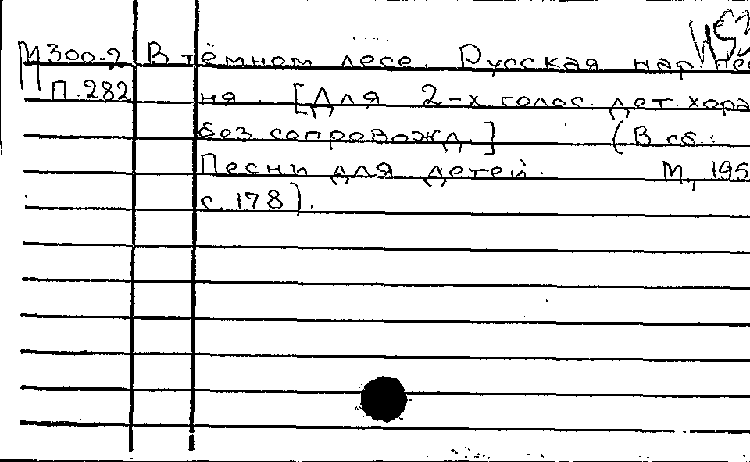 М300-2 В тёмном лесе. Русская нар. пес
П.282 ня. [Для 2-х голос. дет. хора
без сопровожд.] (В сб.:
Песни для детей. М., 195
с. 178).